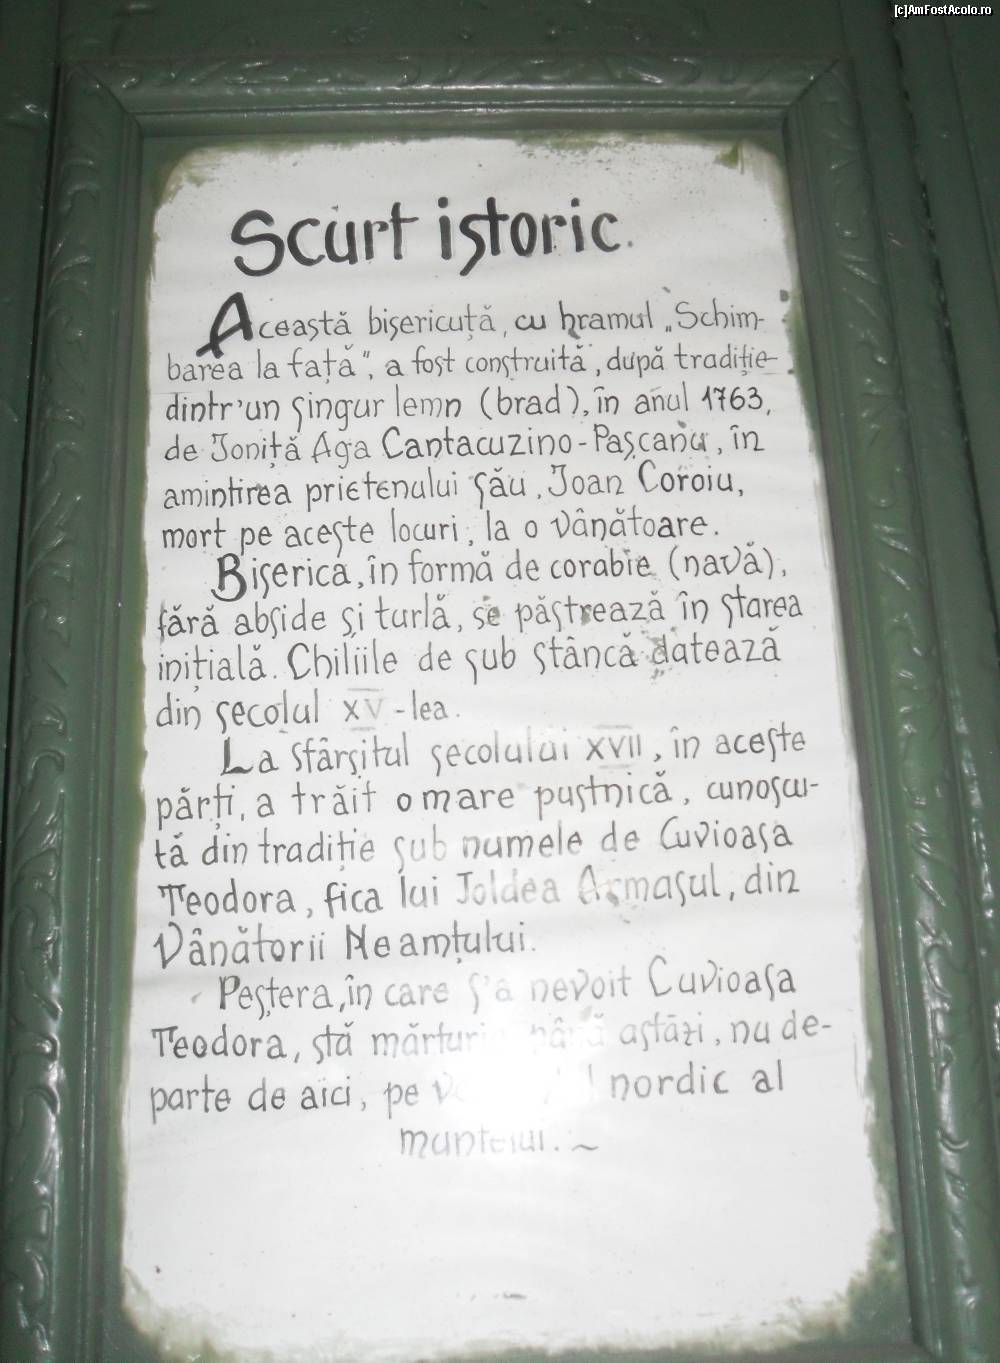 [c]AmFostAcolo.ro
Scurt istoric.
Această bisericuță, cu hramul „Schim-
barea la față", a fost construită, după tradiție
dintr'un singur lemn (brad), în anul 1763,
de Joniță Aga Cantacuzino-Pașcanu, în
amintirea prietenului său, Joan Coroiu,
mort pe aceste locuri, la o vânătoare.
Biserica, în formă de corabie (navă),
fără abside și turlă, se păstrează în starea
inițială. Chiliile de sub stâncă datează
din secolul XV-lea.
La sfârșitul secolului XVII, în aceste
părți, a trăit o mare pustnică, cunoscu-
tă din tradiție sub numele de Cuvioasa
Teodora, fica lui Joldea Armașul, din
Vânătorii Neamțului.
Peștera, în care s'a nevoit Cuvioasa
Teodora, stă până astăzi, nu de-
parte de aici, pe nordic al
muntelui. ~